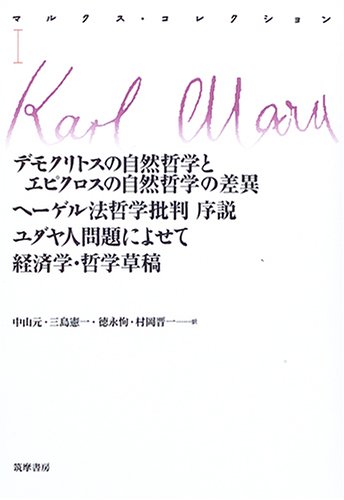 マルクス・コレクション
I
Karl Marx
デモクリトスの自然哲学と
エピクロスの自然哲学の差異
ヘーゲル法哲学批判 序説
ユダヤ人問題によせて
経済学・哲学草稿
中山元・三島憲一・徳永恂・村岡晋一――訳
筑摩書房